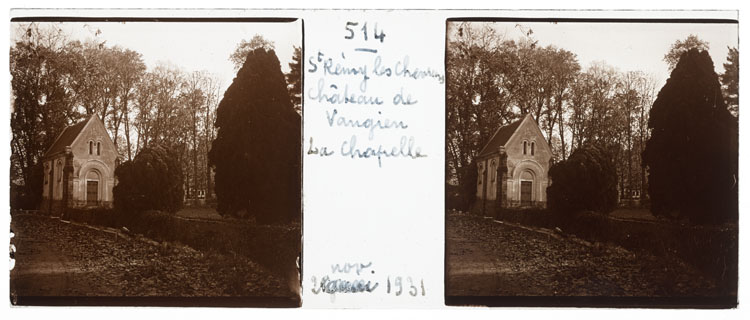 514
St Rémy les Chevreuse
Château de
Vaugien
La Chapelle
nov.
2 mai 1931